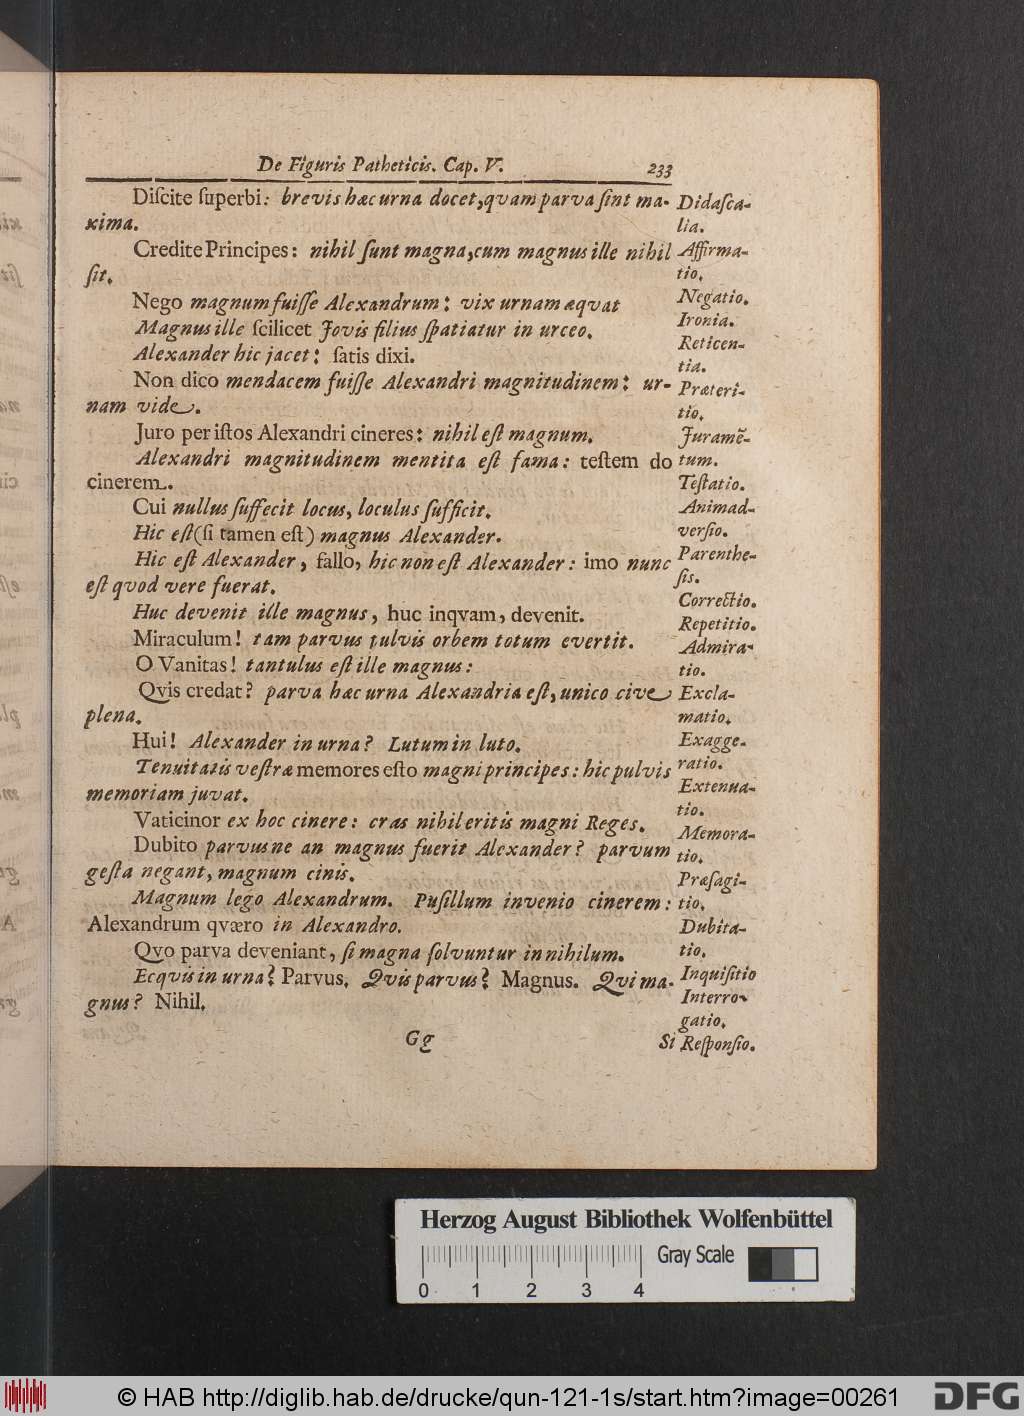 De Figuris Patheticis. Cap. V. 233
Diſcite ſuperbi: brevis hæc urna docet, quam parva ſint ma-
xima.
Credite Principes: nihil ſunt magna, cum magnus ille nihil
ſit.
Nego magnum fuiſſe Alexandrum: vix urnam æqvat
Magnus ille ſcilicet Jovis filius ſpatiatur in urceo.
Alexander hic jacet: ſatis dixi.
Non dico mendacem fuiſſe Alexandri magnitudinem: ur-
nam vide.
Juro per iſtos Alexandri cineres: nihil eſt magnum.
Alexandri magnitudinem mentita eſt fama: teſtem do
cinerem.
Cui nullus ſuffecit locus, loculus ſufficit.
Hic eſt (ſi tamen eſt) magnus Alexander.
Hic eſt Alexander, fallo, hic non eſt Alexander: imo nunc
eſt quod vere fuerat.
Huc devenit ille magnus, huc inqvam, devenit.
Miraculum! tam parvus pulvis orbem totum evertit.
O Vanitas! tantulus eſt ille magnus:
Qvis credat? parva hæc urna Alexandria eſt, unico cive
plena.
Hui! Alexander in urna? Lutum in luto.
Tenuitatis veſtræ memores eſto magni principes: hic pulvis
memoriam juvat.
Vaticinor ex hoc cinere: cras nihil eritis magni Reges.
Dubito parvusne an magnus fuerit Alexander? parvum
geſta negant, magnum cinis.
Magnum lego Alexandrum. Puſillum invenio cinerem:
Alexandrum qværo in Alexandro.
Qvo parva deveniant, ſi magna ſolvuntur in nihilum.
Ecqvis in urna? Parvus. Qvis parvus? Magnus. Qvi ma-
gnus? Nihil.
Gg Si
Didaſca-
lia.
Affirma-
tio.
Negatio.
Ironia.
Reticen-
tia.
Præteri-
tio.
Juramẽ-
tum.
Teſtatio.
Animad-
verſio.
Parenthe-
ſis.
Correctio.
Repetitio.
Admira-
tio.
Excla-
matio.
Exagge-
ratio.
Extenua-
tio.
Memora-
tio.
Præſagi-
tio.
Dubita-
tio.
Inquiſitio
Interro-
gatio.
Reſponſio.
Herzog August Bibliothek Wolfenbüttel
Gray Scale
0 1 2 3 4
© HAB http://diglib.hab.de/drucke/qun-121-1s/start.htm?image=00261
DFG